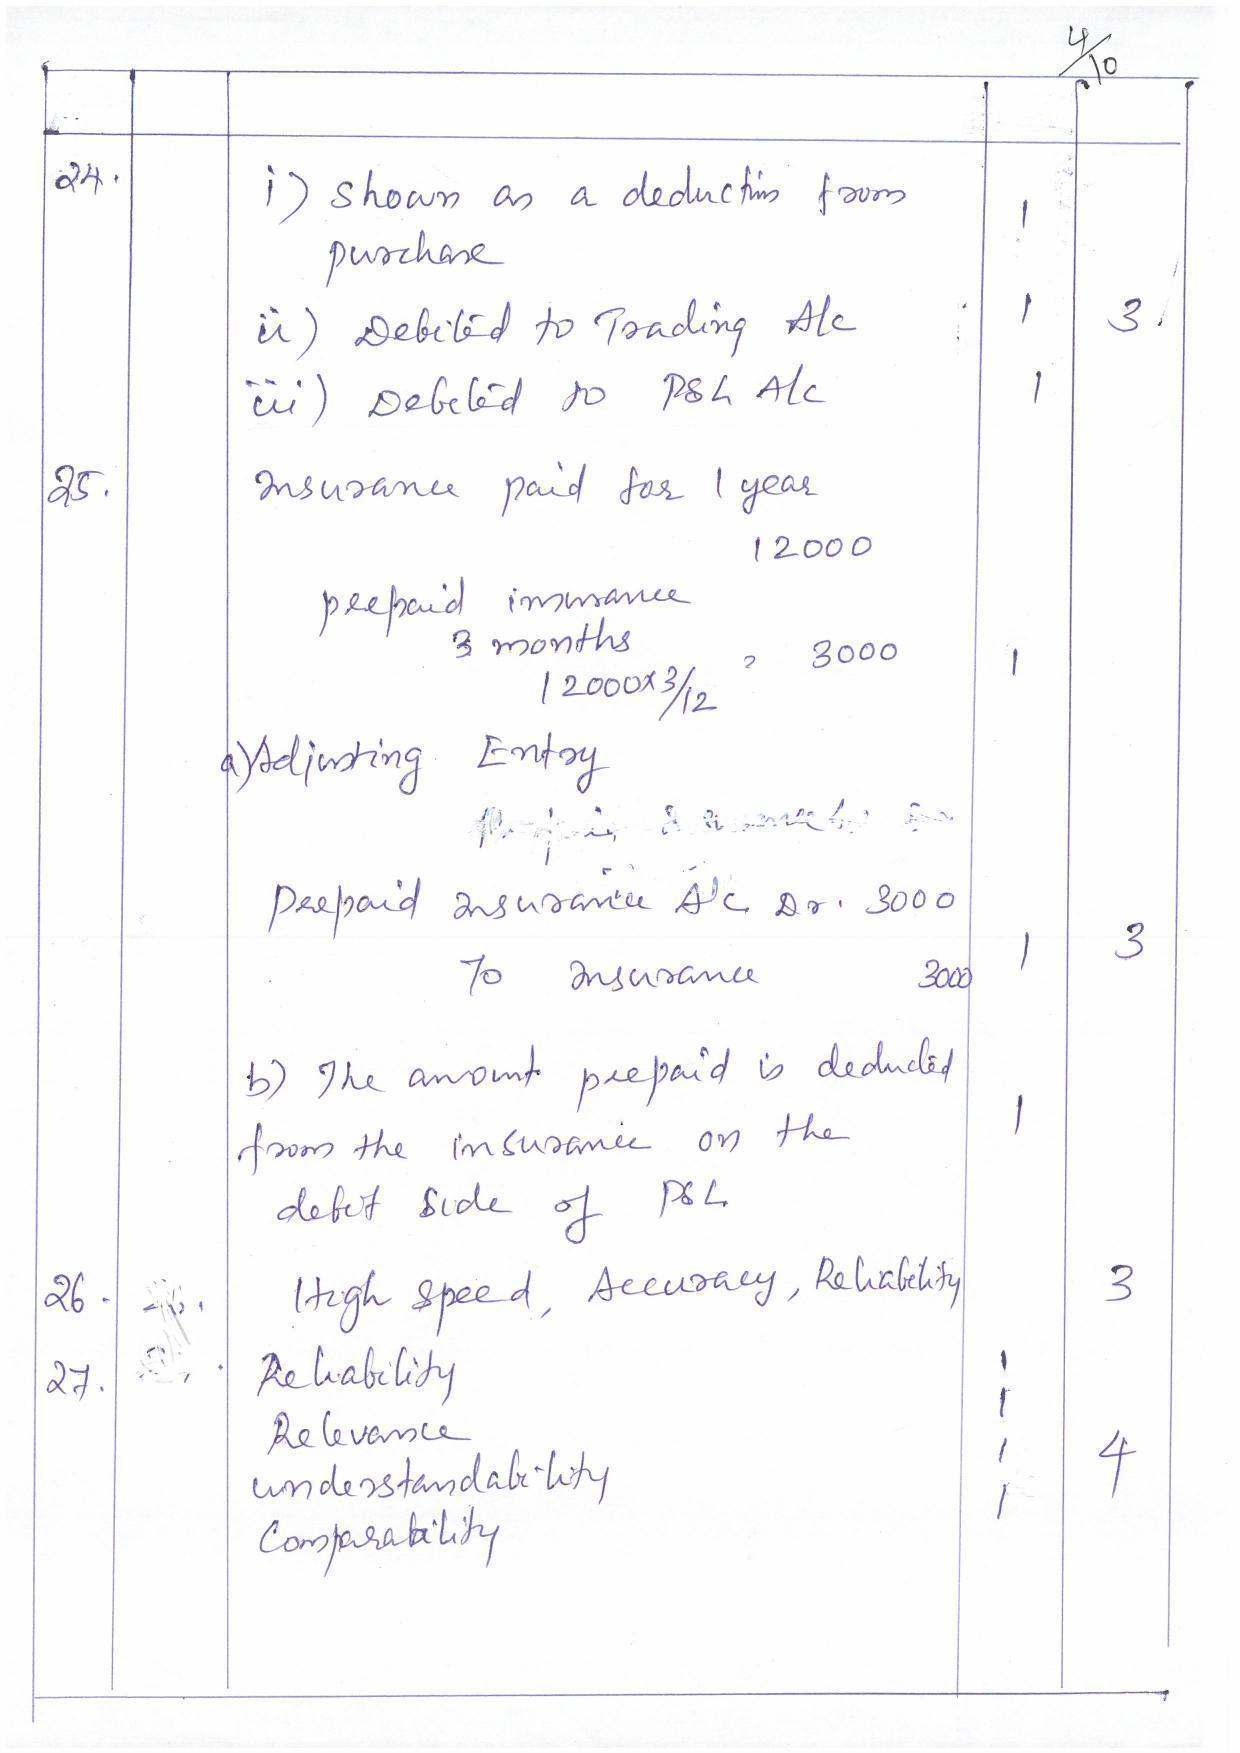 4/10
24.
i) Shown as a deduction from 1
purchase
ii) Debited to Trading A/c 1 3
iii) Debited to P&L A/c 1
25. Insurance paid for 1 year
12000
prepaid insurance
3 months
12000x3/12 = 3000 1
a) Adjusting Entry
Prepaid Insurance A/c Dr. 3000
To Insurance 3000 1 3
b) The amount prepaid is deducted
from the insurance on the 1
debit side of P&L
26. High speed, Accuracy, Reliability 3
27. Reliability 1
Relevance 1
understandability 1 4
Comparability 1